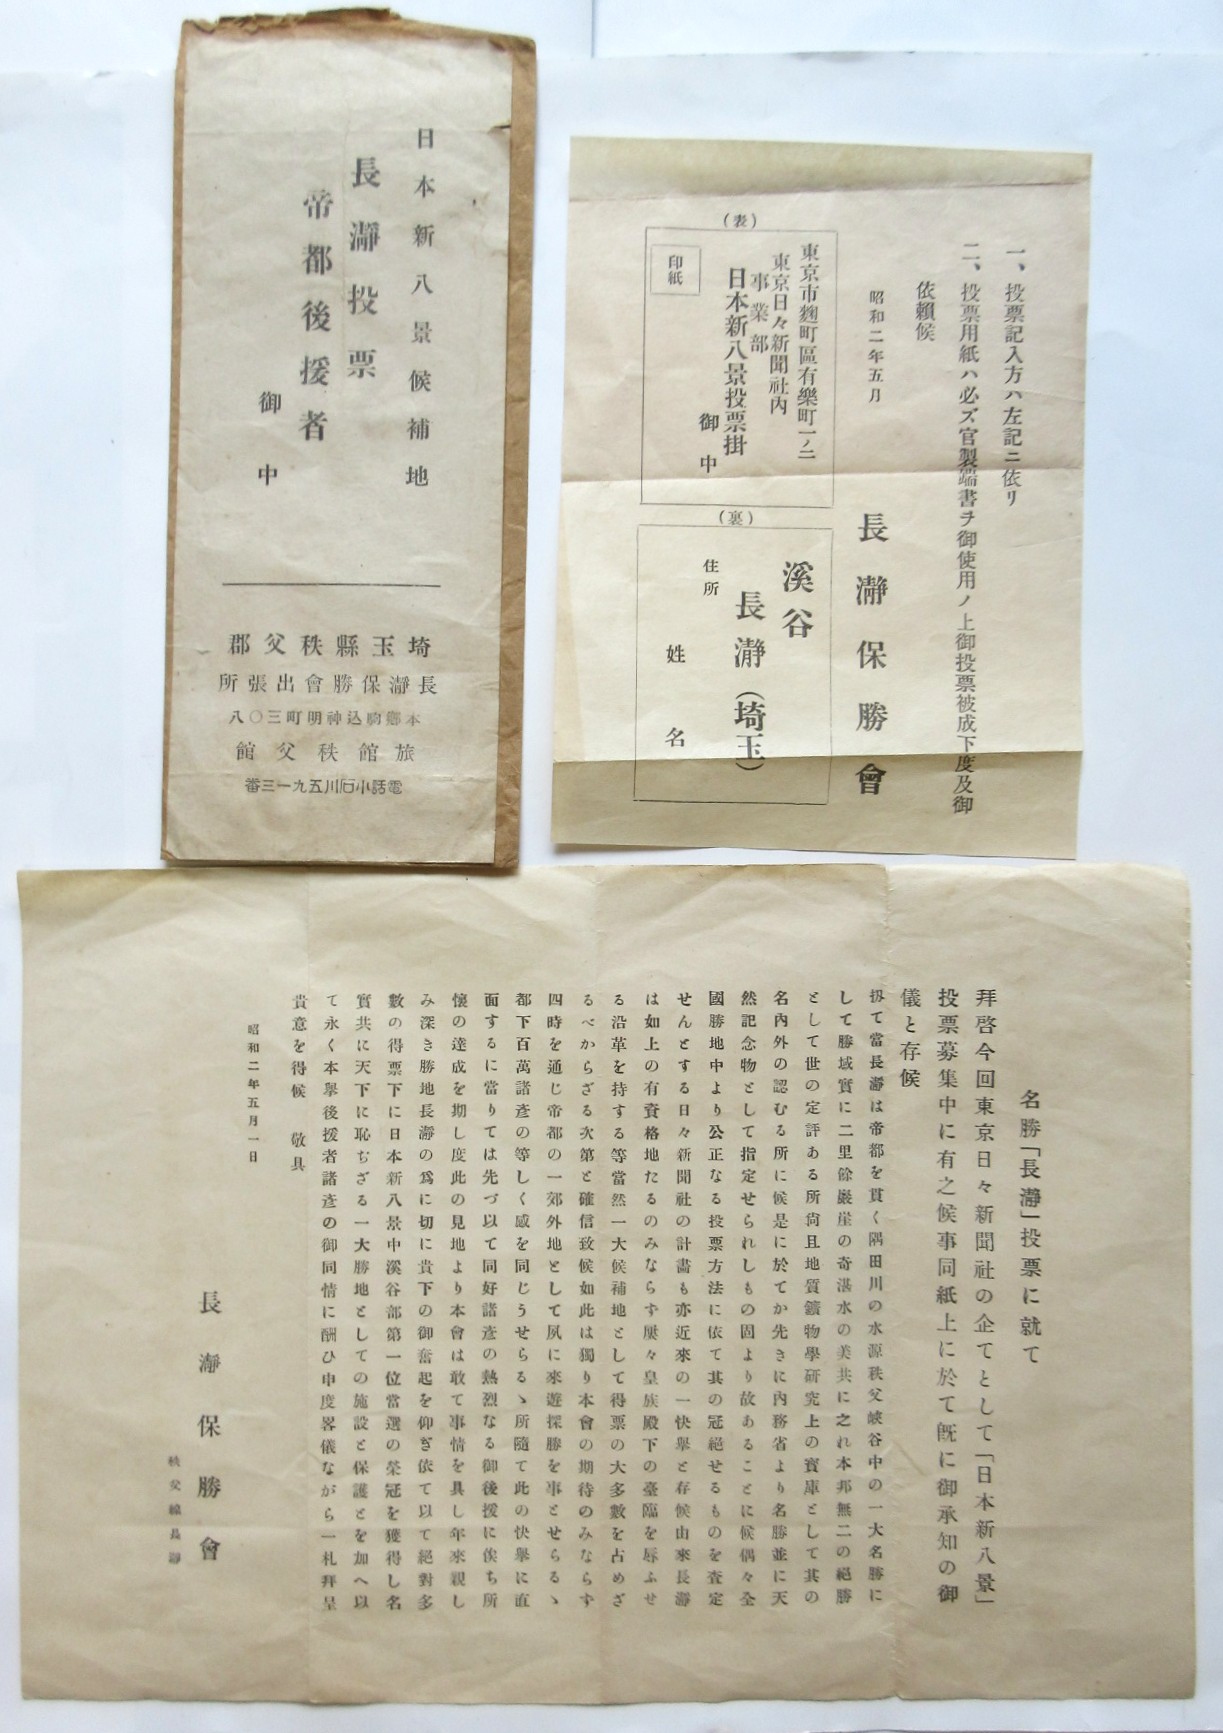 日本新八景候補地
長瀞投票
帝都後援者
御中
埼玉縣秩父郡
長瀞保勝會出張所
本鄕駒込神明町三〇八
旅館秩父館
電話小石川五九一三番
一、投票記入方ハ左記ニ依リ
二、投票用紙ハ必ズ官製端書ヲ御使用ノ上御投票被成下度及御
依賴候
昭和二年五月
長瀞保勝會
(表)
東京市麴町區有樂町一ノ二
東京日々新聞社內
事業部
日本新八景投票掛
御中
印紙
(裏)
溪谷
長瀞(埼玉)
住所
姓名
名勝「長瀞」投票に就て
拜啓今回東京日々新聞社の企てとして「日本新八景」
投票募集中に有之候事同紙上に於て旣に御承知の御
儀と存候
扨て當長瀞は帝都を貫く隅田川の水源秩父峽谷中の一大名勝に
して勝域實に二里餘巖崖の奇湛水の美共に之れ本邦無二の絕勝
として世の定評ある所尙且地質鑛物學硏究上の寶庫として其の
名內外の認むる所に候是に於てか先きに內務省より名勝並に天
然記念物として指定せられしもの固より故あることに候偶々全
國勝地中より公正なる投票方法に依て其の冠絕せるものを査定
せんとする日々新聞社の計畫も亦近來の一快擧と存候由來長瀞
は如上の有資格地たるのみならず屢々皇族殿下の臺臨を辱ふせ
る沿革を持する等當然一大候補地として得票の大多數を占めざ
るべからざる次第と確信致候如此は獨り本會の期待のみならず
四時を通じ帝都の一郊外地として夙に來遊探勝を事とせらるゝ
都下百萬諸彥の等しく感を同じうせらるゝ所隨て此の快擧に直
面するに當りては先づ以て同好諸彥の熱烈なる御後援に俟ち所
懷の達成を期し度此の見地より本會は敢て事情を具し年來親し
み深き勝地長瀞の爲に切に貴下の御奮起を仰ぎ依て以て絕對多
數の得票下に日本新八景中溪谷部第一位當選の榮冠を獲得し名
實共に天下に恥ぢざる一大勝地としての施設と保護とを加へ以
て永く本擧後援者諸彥の御同情に酬ひ申度畧儀ながら一札拜呈
貴意を得候 敬具
昭和二年五月一日
長瀞保勝會
秩父線長瀞